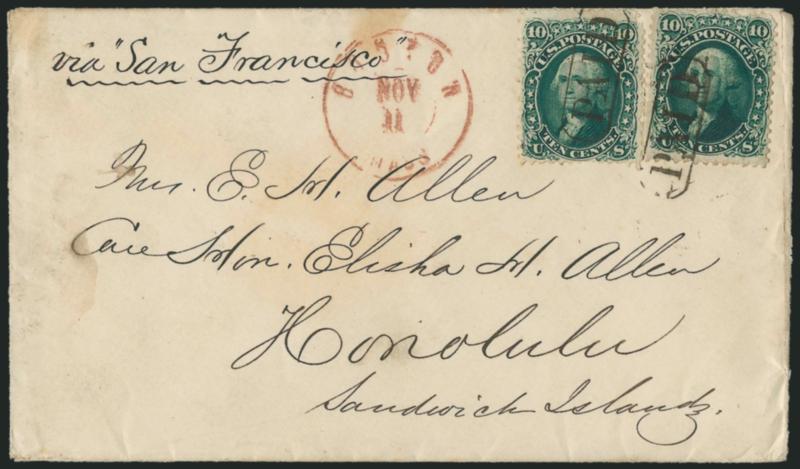 via "San Francisco"
BOSTON
NOV
11
MASS
10 10
U.S. POSTAGE
PAID
TEN CENTS
U S
10 10
U.S. POSTAGE
PAID
TEN CENTS
U S
Mrs. E. H. Allen
Care Hon. Elisha H. Allen
Honolulu
Sandwich Islands.